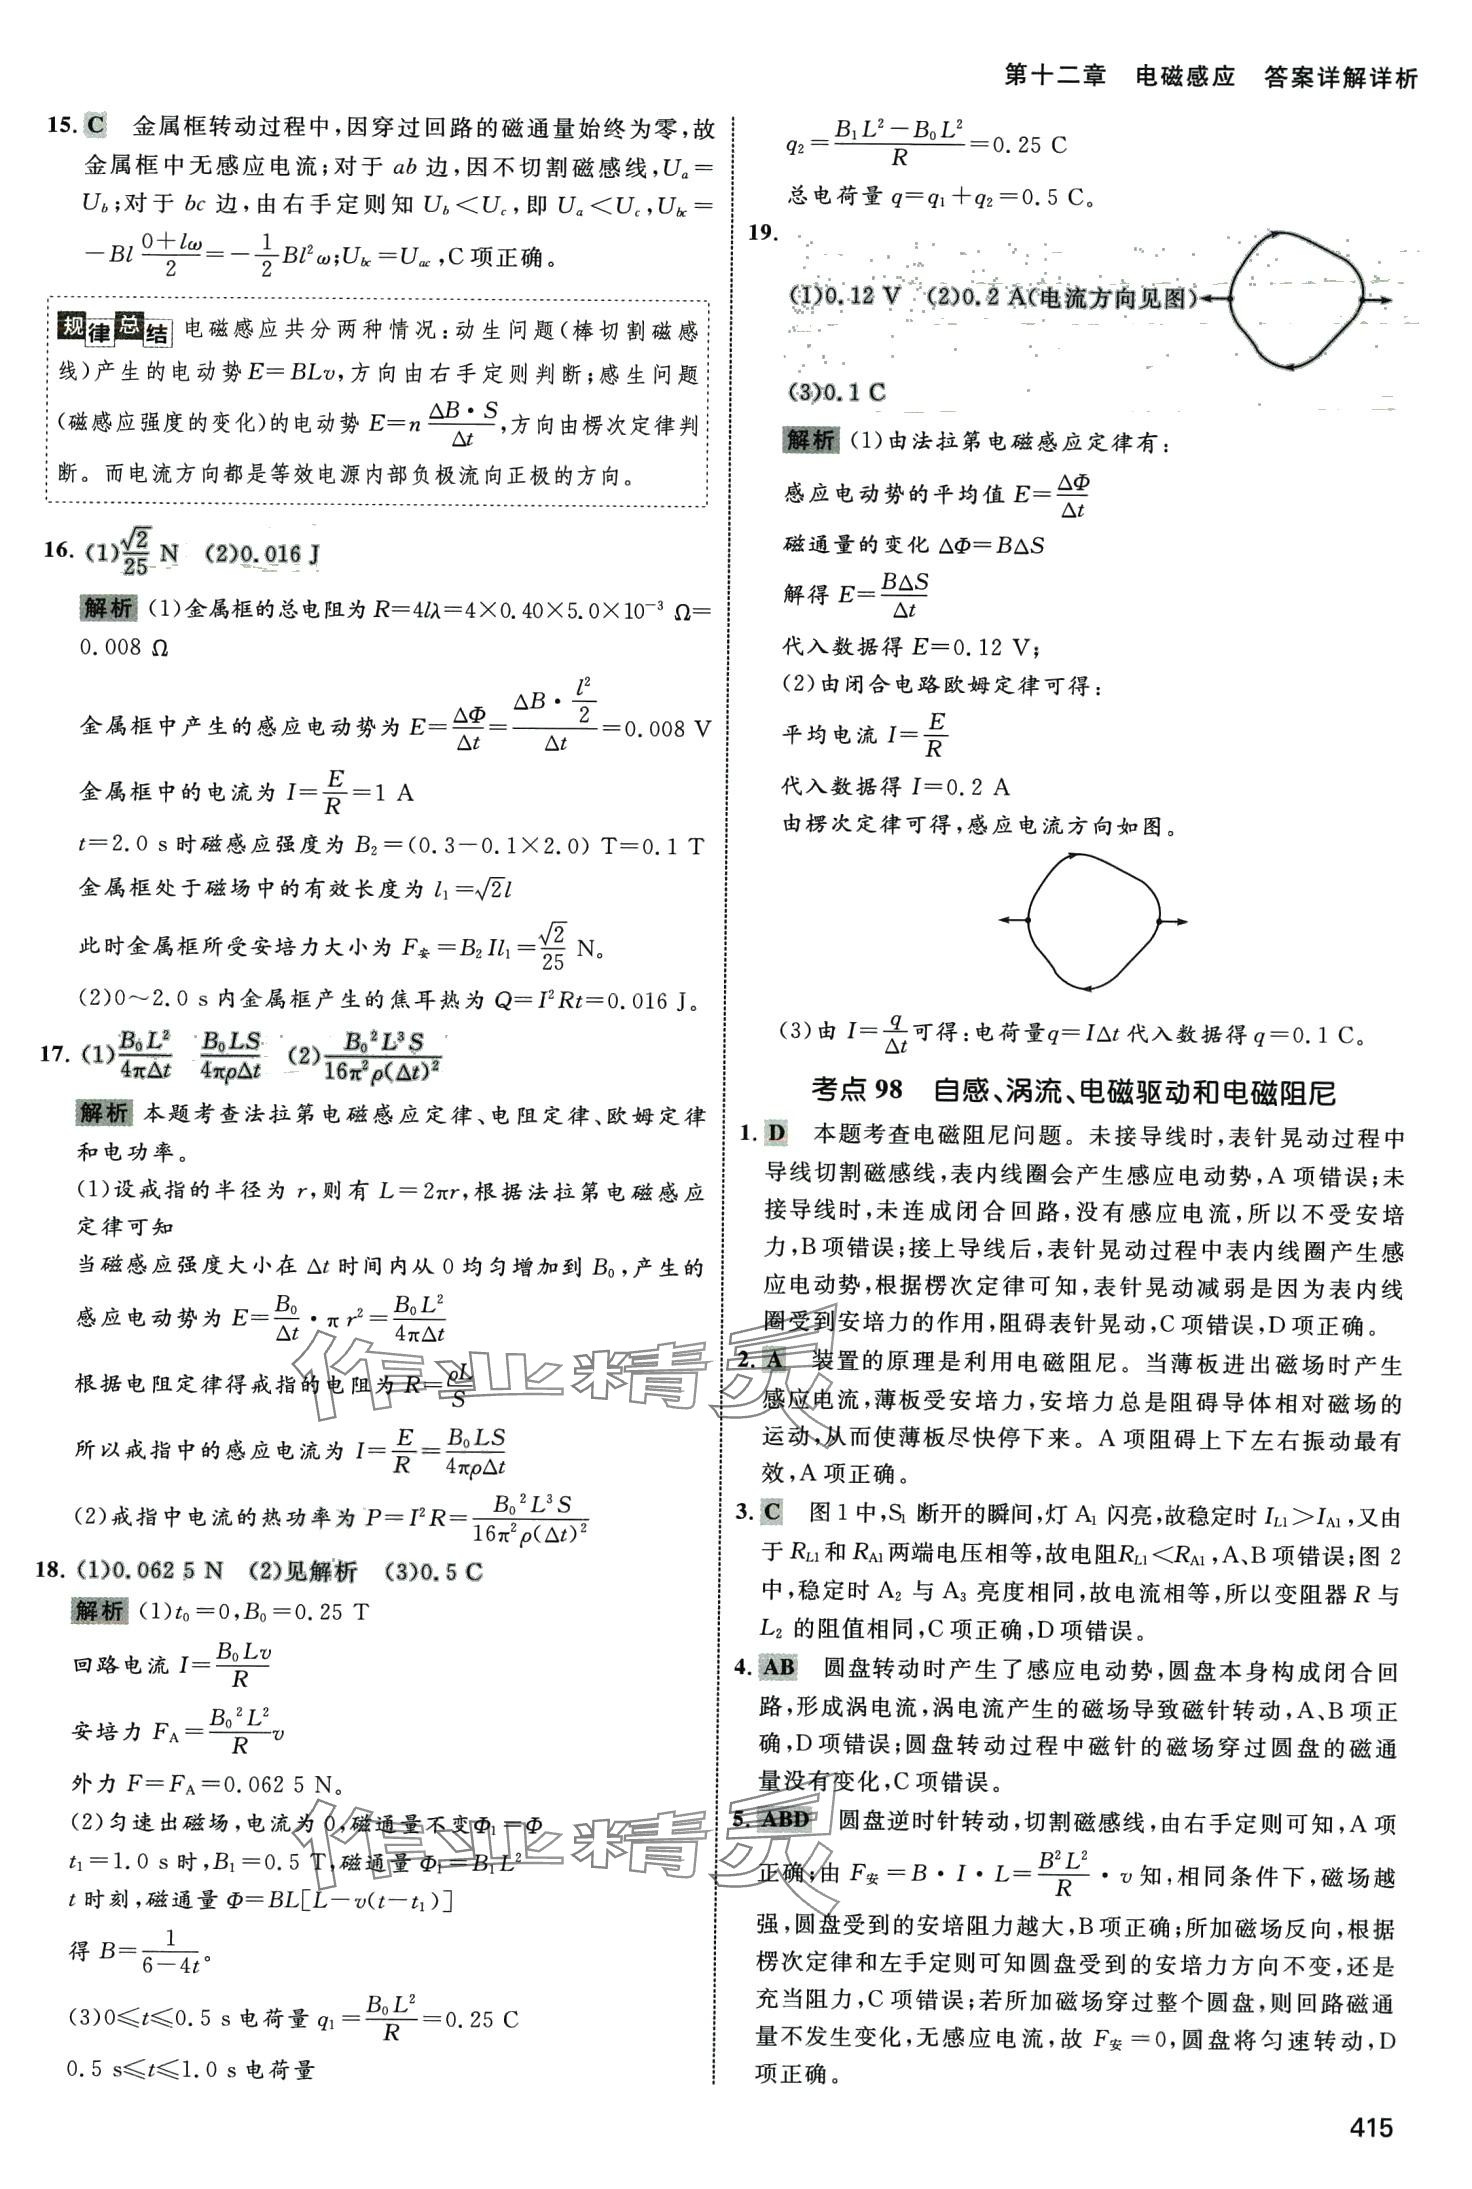 第十二章 电磁感应 答案详解详析
15. C 金属框转动过程中,因穿过回路的磁通量始终为零,故
金属框中无感应电流;对于 ab 边,因不切割磁感线,Uₐ=
U_b;对于 bc 边,由右手定则知 U_b<U_c,即 Uₐ<U_c,U_bc=
-Bl (0+lω)/2=-1/2 Bl²ω;U_bc=U_ac,C 项正确。
规律总结 电磁感应共分两种情况:动生问题(棒切割磁感
线)产生的电动势 E=BLv,方向由右手定则判断;感生问题
(磁感应强度的变化)的电动势 E=n ΔB·S/Δt,方向由楞次定律判
断。而电流方向都是等效电源内部负极流向正极的方向。
16. (1)√2/25 N (2)0.016 J
解析 (1)金属框的总电阻为 R=4lλ=4×0.40×5.0×10⁻³ Ω=
0.008 Ω
金属框中产生的感应电动势为 E=ΔΦ/Δt=(ΔB·l²/2)/Δt=0.008 V
金属框中的电流为 I=E/R=1 A
t=2.0 s时磁感应强度为 B₂=(0.3-0.1×2.0) T=0.1 T
金属框处于磁场中的有效长度为 l₁=√2l
此时金属框所受安培力大小为 F安=B₂Il₁=√2/25 N。
(2)0~2.0 s内金属框产生的焦耳热为 Q=I²Rt=0.016 J。
17. (1)B₀L²/4πΔt B₀LS/4πρΔt (2)B₀²L³S/16π²ρ(Δt)²
解析 本题考查法拉第电磁感应定律、电阻定律、欧姆定律
和电功率。
(1)设戒指的半径为 r,则有 L=2πr,根据法拉第电磁感应
定律可知
当磁感应强度大小在 Δt 时间内从 0 均匀增加到 B₀,产生的
感应电动势为 E=B₀/Δt·πr²=B₀L²/4πΔt
根据电阻定律得戒指的电阻为 R=ρL/S
所以戒指中的感应电流为 I=E/R=B₀LS/4πρΔt
(2)戒指中电流的热功率为 P=I²R=B₀²L³S/16π²ρ(Δt)²
18. (1)0.062 5 N (2)见解析 (3)0.5 C
解析 (1)t₀=0,B₀=0.25 T
回路电流 I=B₀Lv/R
安培力 F_A=B₀²L²/R v
外力 F=F_A=0.062 5 N。
(2)匀速出磁场,电流为 0,磁通量不变Φ₁=Φ
t₁=1.0 s时,B₁=0.5 T,磁通量 Φ₁=B₁L²
t 时刻,磁通量 Φ=BL[L-v(t-t₁)]
得 B=1/(6-4t)。
(3)0≤t≤0.5 s电荷量 q₁=B₀L²/R=0.25 C
0.5 s≤t≤1.0 s电荷量
q₂=(B₁L²-B₀L²)/R=0.25 C
总电荷量 q=q₁+q₂=0.5 C。
19.
(1)0.12 V (2)0.2 A(电流方向见图)
(3)0.1 C
解析 (1)由法拉第电磁感应定律有:
感应电动势的平均值 E=ΔΦ/Δt
磁通量的变化 ΔΦ=BΔS
解得 E=BΔS/Δt
代入数据得 E=0.12 V;
(2)由闭合电路欧姆定律可得:
平均电流 I=E/R
代入数据得 I=0.2 A
由楞次定律可得,感应电流方向如图。
(3)由 I=q/Δt可得:电荷量q=IΔt 代入数据得 q=0.1 C。
考点 98 自感、涡流、电磁驱动和电磁阻尼
1. D 本题考查电磁阻尼问题。未接导线时,表针晃动过程中
导线切割磁感线,表内线圈会产生感应电动势,A 项错误;未
接导线时,未连成闭合回路,没有感应电流,所以不受安培
力,B项错误;接上导线后,表针晃动过程中表内线圈产生感
应电动势,根据楞次定律可知,表针晃动减弱是因为表内线
圈受到安培力的作用,阻碍表针晃动,C项错误,D项正确。
2. A 装置的原理是利用电磁阻尼。当薄板进出磁场时产生
感应电流,薄板受安培力,安培力总是阻碍导体相对磁场的
运动,从而使薄板尽快停下来。A 项阻碍上下左右振动最有
效,A 项正确。
3. C 图 1 中,S₁ 断开的瞬间,灯 A₁ 闪亮,故稳定时 I_L1>I_A1,又由
于 R_L1和 R_A1两端电压相等,故电阻R_L1<R_A1,A、B项错误;图 2
中,稳定时 A₂ 与 A₃ 亮度相同,故电流相等,所以变阻器 R 与
L₂ 的阻值相同,C项正确,D项错误。
4. AB 圆盘转动时产生了感应电动势,圆盘本身构成闭合回
路,形成涡电流,涡电流产生的磁场导致磁针转动,A、B项正
确,D项错误;圆盘转动过程中磁针的磁场穿过圆盘的磁通
量没有变化,C项错误。
5. ABD 圆盘逆时针转动,切割磁感线,由右手定则可知,A 项
正确;由 F安=B·I·L=B²L²/R·v 知,相同条件下,磁场越
强,圆盘受到的安培阻力越大,B项正确;所加磁场反向,根据
楞次定律和左手定则可知圆盘受到的安培力方向不变,还是
充当阻力,C项错误;若所加磁场穿过整个圆盘,则回路磁通
量不发生变化,无感应电流,故 F安=0,圆盘将匀速转动,D
项正确。
作业精灵
作业精灵
415